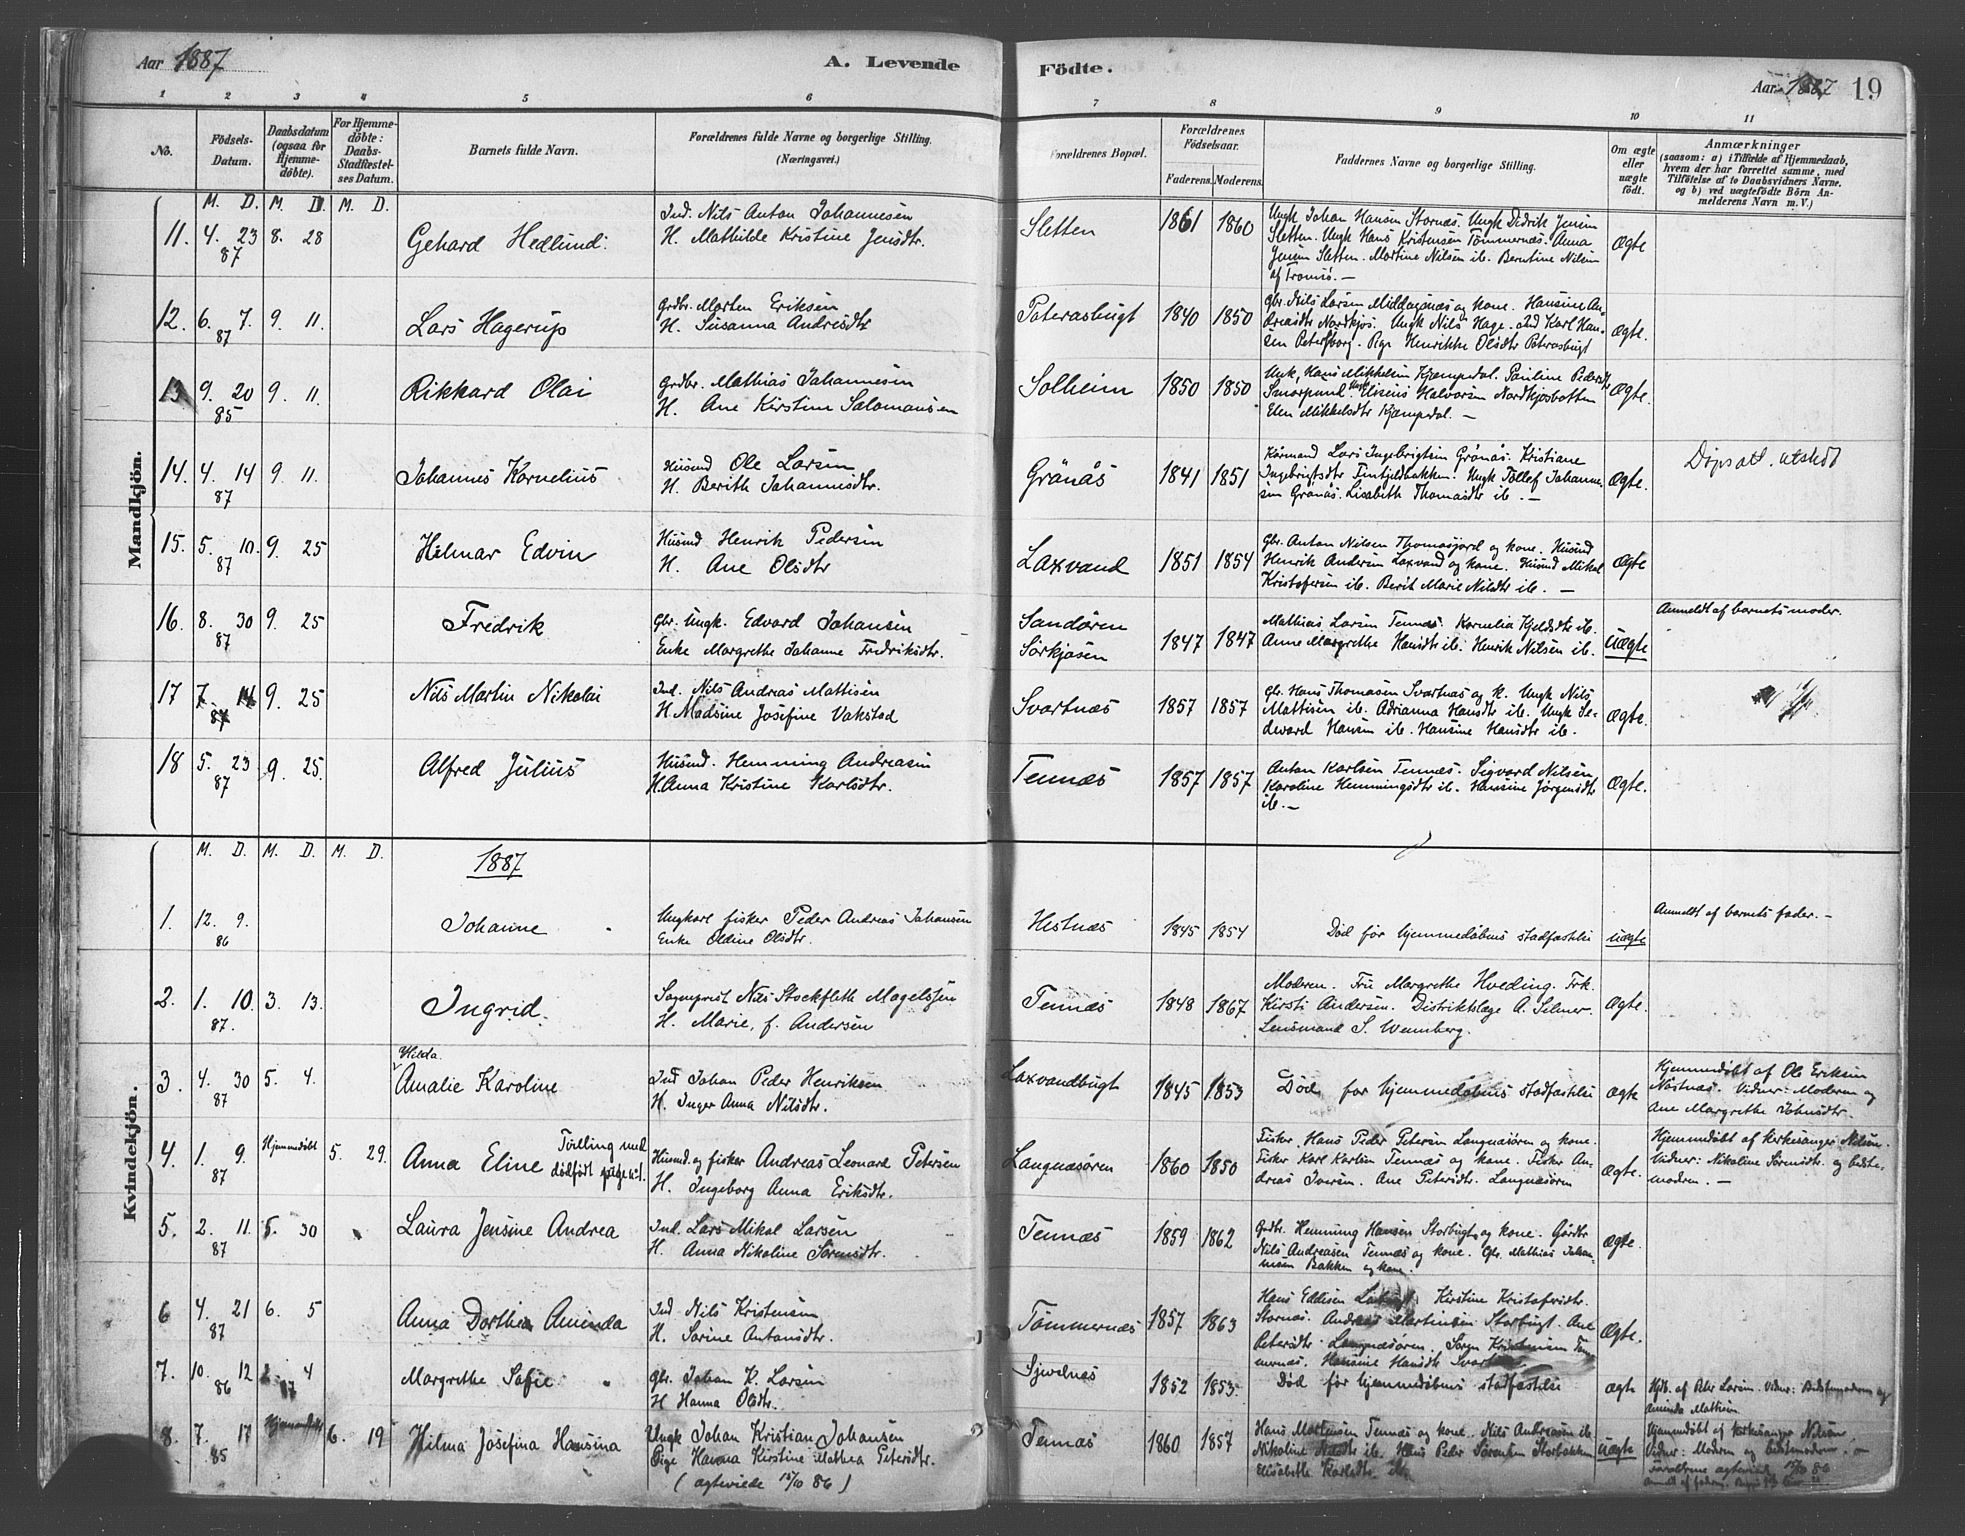 Aar 1887
A. Levende
Födte.
Aar 1887 19
1 2 3 4 5 6 7 8 9 10 11
No.
Födsels-Datum.
Daabsdatum (ogsaa for Hjemme-döbte).
For Hjemme-döbte: Daabs-Stadfæstel-ses Datum.
Barnets fulde Navn.
Forældrenes fulde Navne og borgerlige Stilling.
(Næringsvei.)
Forældrenes Bopæl.
Forældrenes Födselsaar.
Faderens. Moderens.
Faddernes Navne og borgerlige Stilling.
Om ægte eller uægte födt.
Anmærkninger
(saasom: a) i Tilfælde af Hjemmedaab, hvem der har forrettet samme, med Tilföielse af to Daabsvidners Navne. og b) ved uægtefödte Börn Anmelderens Navn m. V.)
Mandkjön.
M. D. M. D. M. D.
11. 4. 23 87 8. 28 Gehard Hedlund.
Ind. Nils Anton Johannesen
H. Mathilde Kristine Jensdtr.
Sletten 1861 1860
Ungk Johan Hansen Stornæs. Ungk Didrik Jensen
Sletten. Ungk Hans Kristensen Tömmernæs. Anna
Jensen Sletten. Martine Nilsen ib. Berntine Nilsen
af Tromsö. —
Ægte
12. 6. 7. 87 9. 11. Lars Hagerup
Grdbr. Morten Eriksen
H. Susanna Andreasdtr
Paterasbugt 1840 1850
Gbr. Nils Larsen Middagsnæs og kone. Hansine An-
dreasdtr Nordkjos. Ungk Nils Hage. Ind Karl Han-
sen Petersborg. Pige Henrikke Olsdtr Paterasbugt
Ægte.
13 9. 20 85 9. 11. Rikkard Olai
Grdbr. Mathias Johannesen
H. Ane Kirstine Salomonsen
Solheim 1850 1850
Ungk. Hans Mikkelsen Kjempedal. Pauline Pedersdtr
Halvorsen Nordkjosbotten
Elen Mikkelsdtr Kjempedal. —
Ægte.
14. 4. 14 87 9. 11. Johannes Kornelius
Husmd Ole Larsen
H. Berith Johannesdtr.
Grönås 1841 1851
Kårmand Lars Ingebrigtsen Grönås. Kristiane
Ingebrigtsdtr Fintjeldbakken. Ungk Tollef Johanne-
sen Grönås. Lisabeth Thomasdtr ib. —
Ægte.
Döpsatt. utstedt
15. 5. 10. 87 9. 25 Hilmar Edvin
Husmd Henrik Pedersen
H. Ane Olsdtr
Laxvand 1851 1854
Gbr. Anton Nilsen Thomasjord og kone. Husmd
Henrik Andersen Laxvand og kone. Husmd Mikal
Kristofersen ib. Berit Marie Nilsdtr ib. —
Ægte
16. 8. 30 87 9. 25 Fredrik
Gbr. Ungk. Edvard Johansen
Enke Margrethe Johanne Fredriksdtr.
Sandören
Sörkjosen 1847 1847
Mathias Larsen Tennæs. Kornelia Kjeldsdtr ib.
Anne Margrethe Hansdtr ib. Henrik Nilsen ib.
Uægte
Anmeldt af barnets moder.
17 7. 14 87 9. 25 Nils Martin Nikolai
Ind. Nils Andreas Mattisen
H Madsine Josefine Vakstad
Svartnæs 1857 1857
Gbr. Hans Thomasen Svartnæs og k. Ungk Nils
Mattisen ib. Adrianna Hansdtr ib. Ungk Se-
devard Hansen ib. Hansine Hansdtr ib.
Ægte.
18 5. 23 87 9. 25. Alfred Julius
Husmd. Hemming Andreasen
H. Anna Kristine Karlsdtr.
Tennæs 1857 1857
Anton Karlsen Tennæs. Sigvard Nilsen
Karoline Hemmingsdtr ib. Hansine Jörgensdtr
ib. —
Ægte.
Kvindekjön.
M. D. M. D. M. D.
1887
1. 12. 9. 86 Johanne
Ungkarl fisker Peder Andreas Johansen
Enke Oldine Olsdtr.
Hestnæs 1845 1854
Död för hjemmedøbens stadfæstelse
uægte
Anmeldt af barnets fader. —
2. 1. 10. 87. 3. 13. Ingrid
Sogneprest Nils Stockfleth Magelssen
H. Marie, f. Andersen
Tennæs 1848 1867
Moderen. Fru Margrethe Hveding. Frk.
Kirsti Andersen. Distriktslæge A. Selmer.
Lensmand S. Wennberg.
Ægte.
3. 4. 30 87 5. 4. Hilda
Amalie Karoline
Ind Johan Peder Henriksen
H. Inger Anna Nilsdtr.
Laxvandbugt 1845 1853
Död för hjemmedøbens stadfæstelse
ægte
Hjemmedøbt af Ole Eriksen
Næstnæs. Vidner: Moderen og
Ane Margrethe Johnsdtr.
4. 1. 9. 87 Hjemmedøbt 5. 29. Anna Eline
Tvilling med
dödfödt pigeno1.
Husmd. og fisker Andreas Leonard Petersen
H. Ingeborg Anna Eriksdtr.
Langnæsören 1860 1850
Fisker Hans Peder Petersen Langnæsören og kone.
Fisker Karl Karlsen Tennæs og kone. Fisker An-
dreas Iversen. Ane Petersdtr. Langnæsören
Ægte.
Hjemmedøbt af kirkesanger Nilsen.
Vidner: Nikoline Sörensdtr. og bedste-
modren. —
5. 2. 11. 87 5. 30 Laura Jensine Andrea
Ind. Lars Mikal Larsen
H. Anna Nikoline Sörensdtr.
Tennæs 1859 1862
Grdbr. Hemming Hansen Storbugt og kone. Gårdbr
Nils Andreasen Tennæs og kone. Gbr. Mathias Johan-
nesen Bakken og kone.
Ægte.
6 4. 21 87 6. 5 Anna Dorthea Aminda
Ind Nils Kristensen
H. Sörine Antonsdtr.
Tömmernæs 1857 1863
Hans Eddisen Kirstine Kristofersdtr.
Stornæs. Andreas Martinsen Storbugt. Ane
Petersdtr Langnæsören. Sören Kristensen Töm-
mernæs. Hansine Hansdtr Svartnæs.
Ægte.
7. 10. 12 86 4 87 Margrethe Sofie
Gbr. Johan K. Larsen
H Hanna Olsdtr.
Sjivelnæs 1852 1853
Död för hjemmedøbens stadfæstelse
ægte
Hjdb. af Peler Larsen. Vidner: Bedstemoderen og
Aminda Mathisen.
8. 7. 17 85 Hjemmedøbt 6. 19 Hilma Josefina Hansina
Ungk Johan Kristian Johansen
Pige Hanna Kirstine Mathea Petersdtr.
(ægteviede 15/10 86)
Tennæs 1860 1857
Hans Mortensen Tennæs og kone. Nils Andreasen ib.
Nikoline Nilsdtr ib. Hans Peder Sörensen Storbakken
Elisabeth Karlsdtr ib.
Uægte
Hjemmedøbt af kirkesanger Nilsen
Vidner: Modren og bedstemodren. —
Forældrene ægteviede 15/10 86